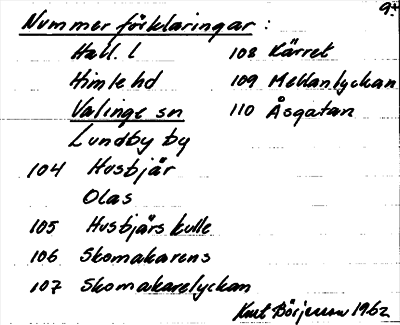 9.
Nummerförklaringar:
Hall. l
Himle hd
Valinge sn
Lundby by
104 Husbjär
Olas
105 Husbjärs kulle
106 Skomakarens
107 Skomakarelyckan
108 Kärret
109 Mellanlyckan
110 Åsgatan
Kurt Börjesson 1962